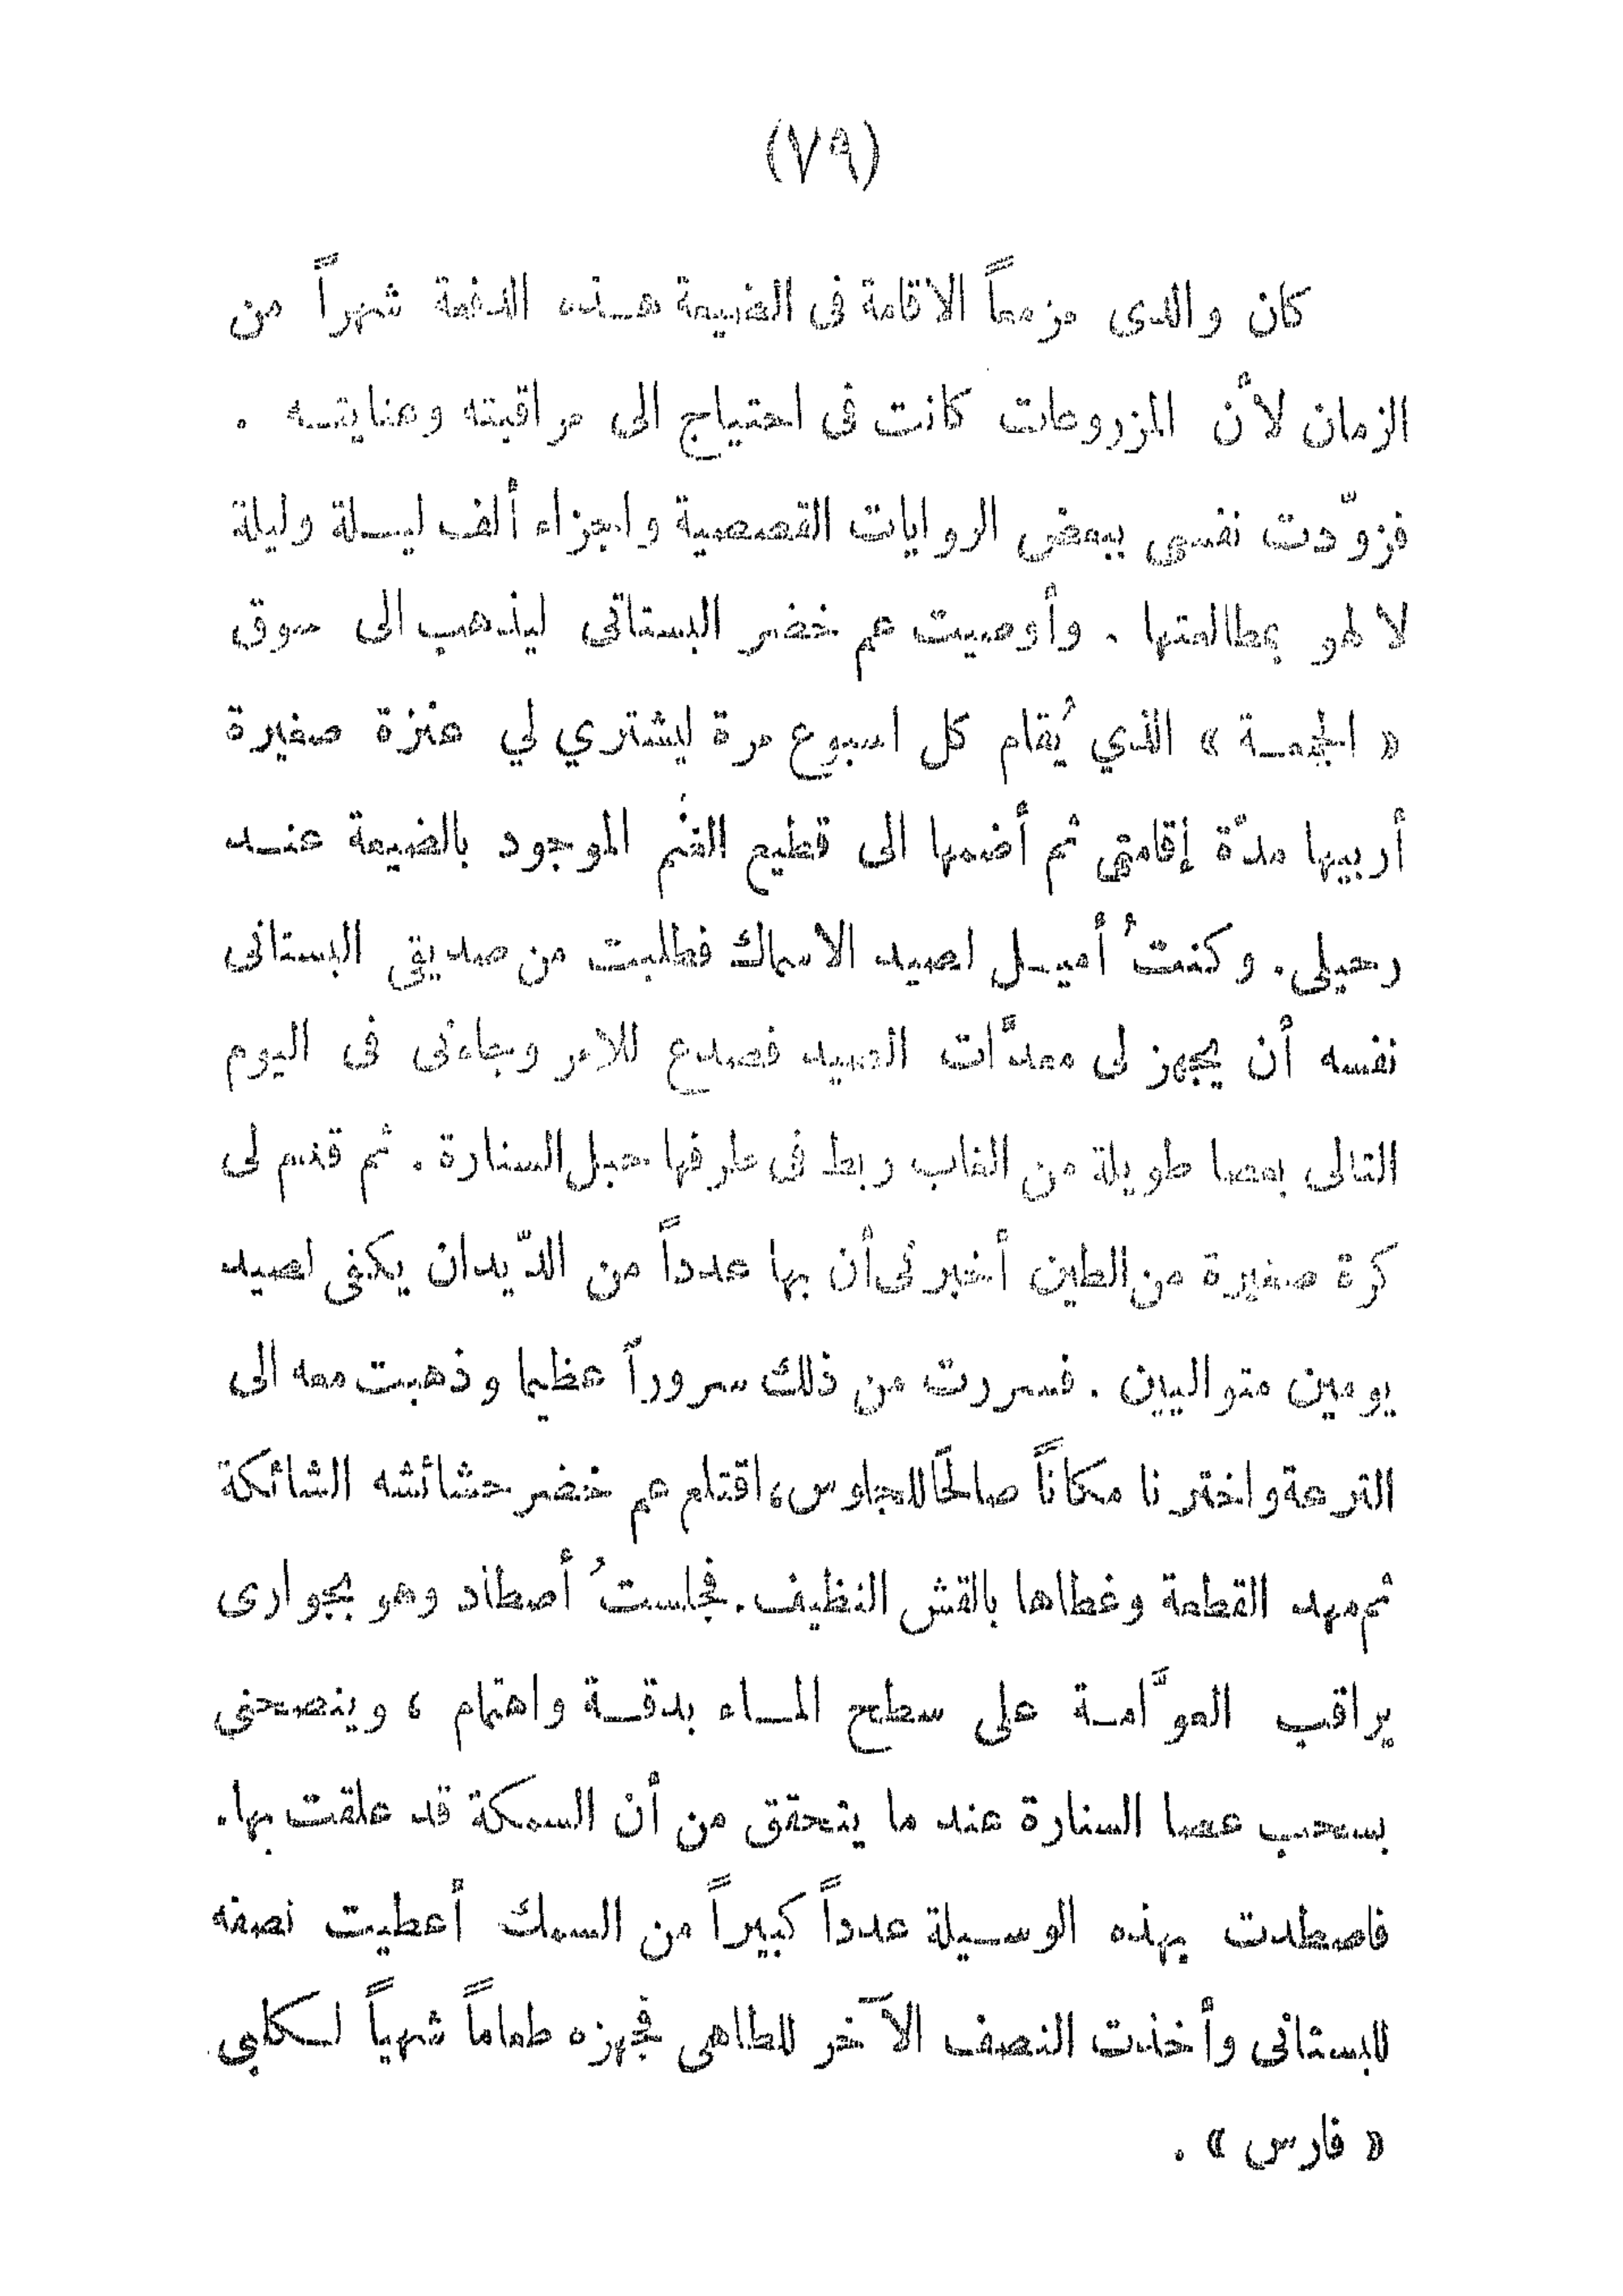 (٧٩)
كان والدى مزمعاً الاقامة فى الضيعة هذه الدفعة شهراً من
الزمان لأن المزروعات كانت فى احتياج الى مراقبته وعنايته .
فزوّدت نفسى ببعض الروايات القصصية واجزاء ألف ليلة وليلة
لالهو بمطالعتها . وأوصيت عم خضر البستانى ليذهب الى سوق
« الجمعة » الذي يُقام كل اسبوع مرة ليشتري لي عنزة صغيرة
أربيها مدّة إقامتى ثم أضمها الى قطيع الغنم الموجود بالضيعة عند
رحيلى. وكنتُ أميل لصيد الاسماك فطلبت من صديقى البستانى
نفسه أن يجهز لى معدَّات الصيد فصدع للامر وجاءنى فى اليوم
التالى بعصا طويلة من الغاب ربط فى طرفها حبل السنارة . ثم قدم لى
كرة صغيرة من الطين أخبرنى أن بها عدداً من الدّيدان يكفى لصيد
يومين متواليين . فسررت من ذلك سروراً عظيما وذهبت معه الى
الترعة واخترنا مكاناً صالحًا للجلوس، اقتلع عم خضر حشائشه الشائكة
ثم مهد القطعة وغطاها بالقش النظيف. فجلستُ أصطاد وهو بجوارى
يراقب العوَّامة على سطح الماء بدقة واهتمام ، وينصحنى
بسحب عصا السنارة عند ما يتحقق من أن السمكة قد علقت بها.
فاصطدت بهذه الوسيلة عدداً كبيراً من السمك أعطيت نصفه
للبستانى وأخذت النصف الآخر للطاهى فجهزه طعاماً شهياً لكلبي
« فارس » .